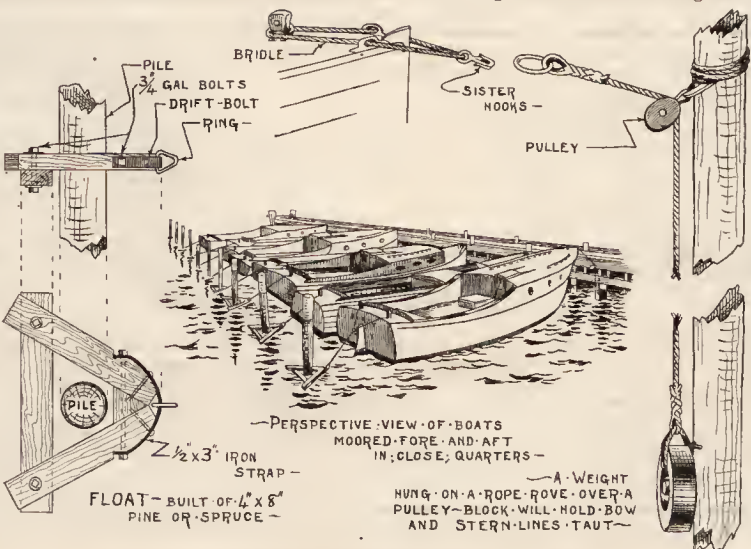 BRIDLE
PILE
3/4" GAL BOLTS
DRIFT-BOLT
RING-
SISTER
HOOKS-
PULLEY
PILE
1/2" x 3" IRON
STRAP-
FLOAT - BUILT OF 4" x 8"
PINE OR SPRUCE-
-PERSPECTIVE VIEW OF BOATS
MOORED FORE AND AFT
IN CLOSE QUARTERS-
-A WEIGHT
HUNG ON A ROPE ROVE OVER A
PULLEY-BLOCK WILL HOLD BOW
AND STERN LINES TAUT-